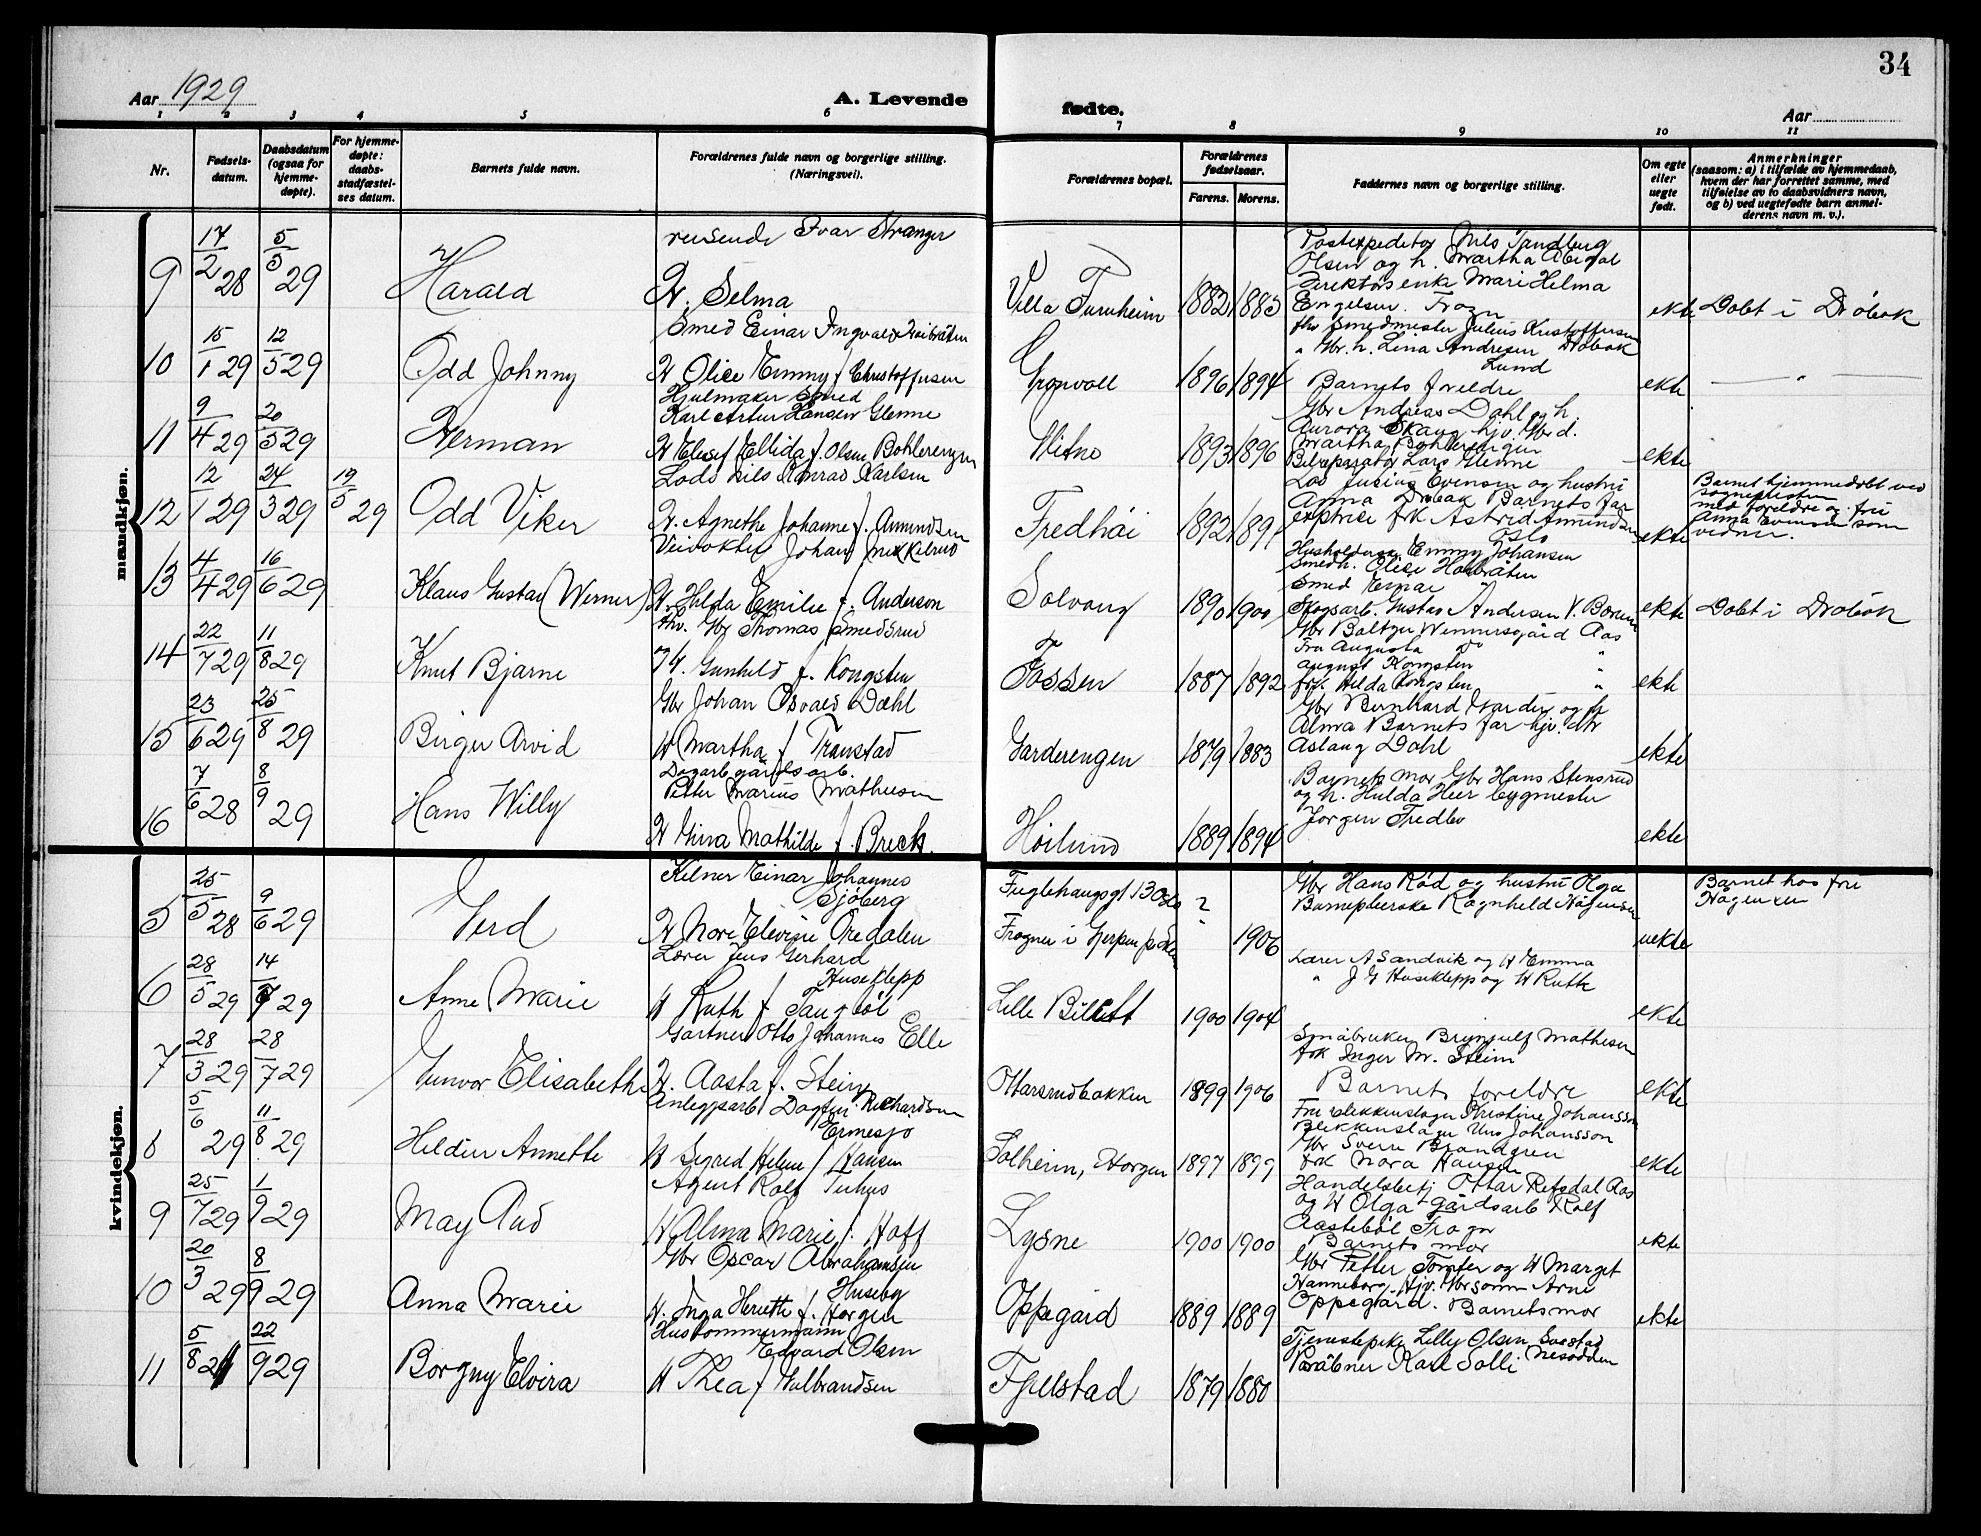 34
Aar 1929
A. Levende
fødte.
Aar
1 2 3 4 5 6 7 8 9 10 11
Nr.
Fødsels-
datum.
Daabsdatum
(ogsaa for
hjemme-
døpte).
For hjemme-
døpte:
daabs-
stadfæstel-
ses datum.
Barnets fulde navn.
Forældrenes fulde navn og borgerlige stilling.
(Næringsvei).
Forældrenes bopæl.
Forældrenes
fødselsaar.
Farens. Morens.
Faddernes navn og borgerlige stilling.
Om egte
eller
uegte
født.
Anmerkninger
(saasom: a) i tilfælde av hjemmedaab,
hvem der har forrettet samme, med
tilføielse av to daabsvidners navn,
og b) ved uegtefødte barn anmel-
derens navn m. v.).
mandkjøn.
9 17/2 28 5/5 29 Harald
reisende Ivar Stranger
H. Selma
Villa Furuheim 1882 1883
Postexpeditør Nils Sandberg
Olsen og h. Martha Abigal
Direktørs enke Mari Helma
Engelsen. Frogn
ekte Døbt i Drøbak
10 15/1 29 12/5 29 Odd Johnny
Smed Einar Ingvald
H Olise Emmy f. Christoffersen
Gronvoll 1896 1894
fhv Smedmester Julius Kristoffersen
" Gbr. h. Lina Andresen Drøbak
Lund
Barnets foreldre
ekte — " —
11 9/4 29 20/5 29 Herman
Hjulmaker Smed
Karl Artur Hansen Glenne
H Elise Ellida f. Olsen Bohlerengen
Hitno 1893 1896
Gbr Andreas Dahl og h.
Aurora Skaug hjv. Gbr d.
Martha Bohlerengen
Bilreparatør Lars Glenne
ekte
12 12/1 29 24/3 29 19/5 29 Odd Viker
Lods Nils Konrad Karlsen
H. Agnethe Johanne f. Amundsen
Fredhöi 1892 1891
Los Julius Evensen og hustru
Anna Drøbak Barnets far
exptrice frk Astrid Amundsen
Oslo
ekte
Barnet hjemmedøbt ved
sognepresten
med foreldre og fru
Anna Evensen som
vidner.
13 4/4 29 16/6 29 Klaus Gustav (Werner)
Veivokter Johan
H. Hilda Emilie f. Anderson
Solvang 1890 1900
Husholderske Emmy Johansen
Smedh. Olise
Smed Einar
Skogsarb. Gustav Andersen V. Bærum
ekte Døbt i Drøbak
14 22/7 29 11/8 29 Knut Bjarne
fhv. Gbr Thomas Smedsrud
H. Gunhild f. Kongsten
Fossen 1887 1892
Gbr Baltzer Wennersgård Aas
Fru Augusta do "
August Kongsten
frk. Hilda Kongsten "
ekte
15 23/6 29 25/8 29 Birger Arvid
Gbr Johan Osvald Dahl
H Martha f Transtad
Garderengen 1879 1883
Gbr Bernhard Garder og h
Alma Barnets far hjv. dtr
Aslaug Dahl
ekte
16 7/6 28 8/9 29 Hans Willy
Dagarb gårdsarb.
Petter Marius Mathiesen
H Gina Mathilde f. Breck.
Höilund 1889 1894
Barnets mor Gbr Hans Stensrud
og h. Hulda Heer bygmester
Jørgen Fredbo
ekte
kvindekjøn.
5 25/5 28 9/6 29 Gerd
Kelner Einar Johannes
Sjöberg
H Nore Elevine Öredalen
Fuglehaugsgt 13 Oslo ?
Frogner i Gjerpen p. Skien 1906
Gbr Hans Röd og hustru Olga
Barnepleierske Ragnhild Hågensen
uekte
Barnet hos fru
Hågensen
6 28/5 29 14/7 29 Anne Marie
Lærer Jens Gerhard
Huseklepp
H Ruth f Taugbøl
Lille Billett 1900 1904
Lærer A Sandvik og H Emma
" J G Huseklepp og H Ruth
ekte
7 28/3 29 28/7 29 Gunvor Elisabeth
Gartner Otto Johannes Elle
H. Aasta f. Stein
Ottarsrudbakken 1899 1906
Småbruker Brynjulf Mathisen
frk Inger M. Stein
Barnets foreldre
ekte
8 5/6 29 11/8 29 Hildur Annette
Anlegsarb Dagfin Richardsen
Ermesjø
H Sigrid Helene f Hansen
Solheim, Horgen 1897 1899
Fru blikkenslager Kristine Johansson
Blikkenslager Uno Johansson
Gbr Sverre Brandgren
frk Nora Hansen
ekte
9 25/7 29 1/9 29 May Aud
Agent Rolf Tuhus
H Alma Marie f. Hoff
Lysne 1900 1900
Handelsbetj Ottar Refsdal Aas
og H Olga Gårdsarb Rolf
Aasteböl Frogn
Barnets mor
ekte
10 20/3 29 8/9 29 Anna Marie
Gbr Oscar Abrahamsen
Huseby
H. Inga Henriette f. Horgen
Oppegård 1889 1889
Gbr Petter Tomter og H Marget
Hanneborg Hjv. Gbrsønn Arne
Oppegård. Barnets mor
ekte
11 5/8 22/9 29 Borgny Elvira
Hustømmermann
Edvard Olsen
H Thea f Gulbrandsen
Fjellstad 1879 1880
Tjenestepike Lilly Olsen Svestad
Karl Solli Nesodden